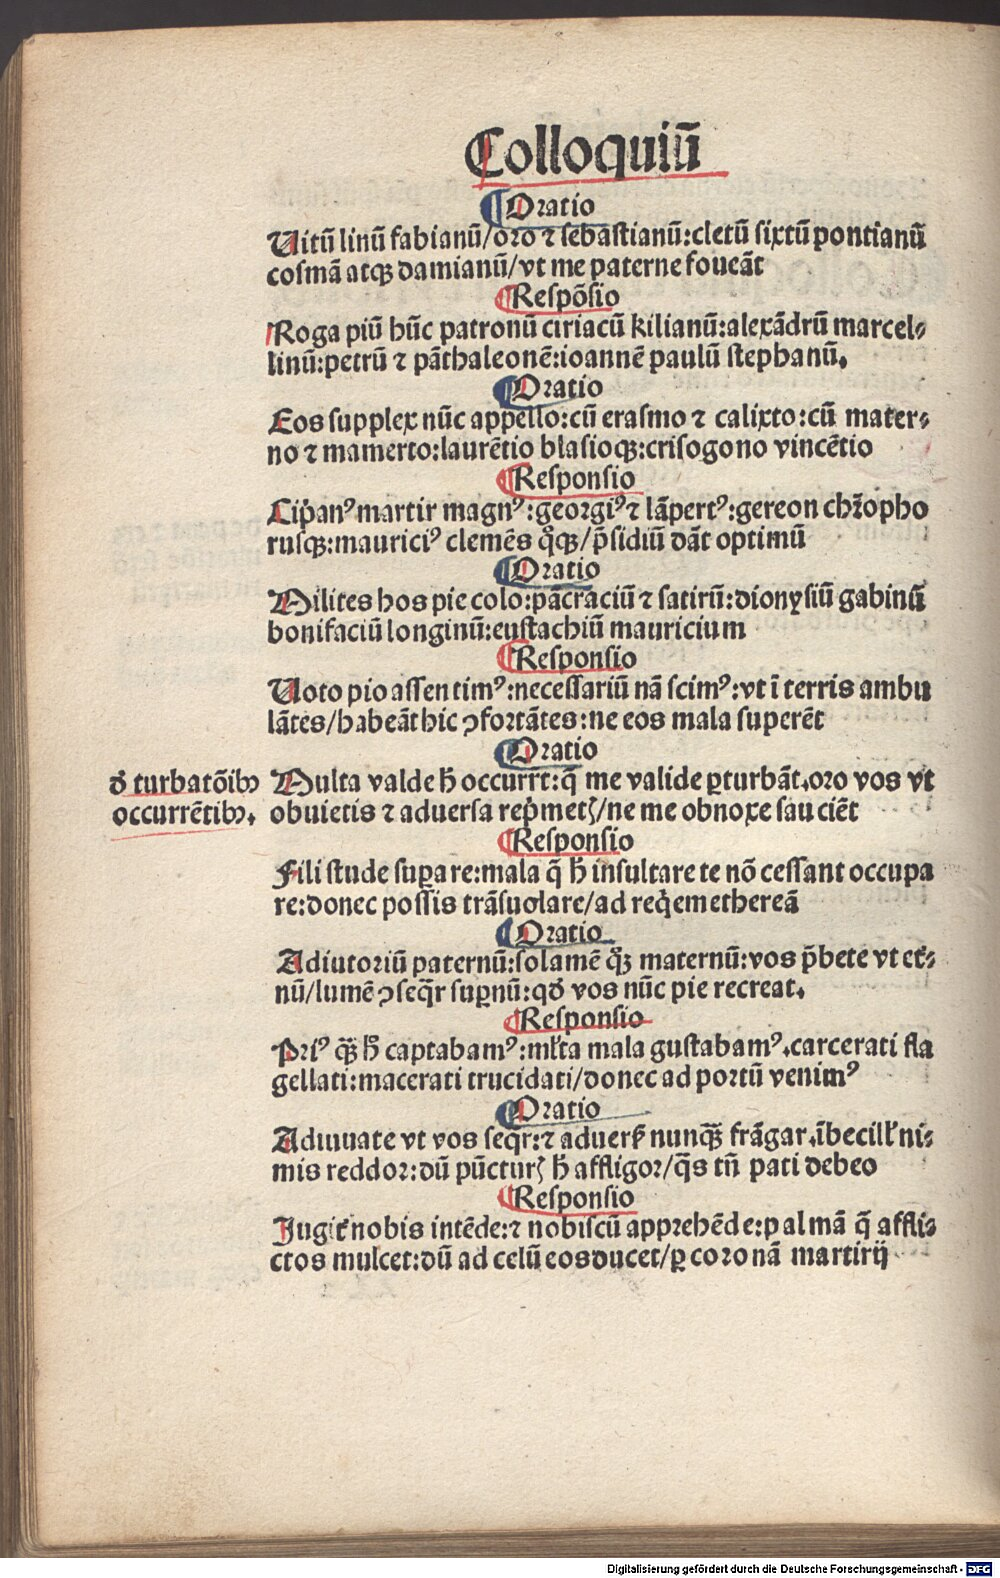 Colloquiū
¶Oratio
Uitū linū fabianū/oro ⁊ sebastianū:cletū sixtū pontianū
cosmā atqꝫ damianū/vt me paterne foueāt
¶Respōsio
Roga piū hūc patronū ciriacū kilianū:alexādrū marcel⸗
linū:petrū ⁊ pāthaleonē:ioannē paulū stephanū.
¶Oratio
Eos supplex nūc appello:cū erasmo ⁊ calixto:cū mater⸗
no ⁊ mamerto:laurētio blasioqꝫ:crisogono vincētio
¶Responsio
Cip̄anꝰ martir magnꝰ:georgiꝰ ⁊ lāpertꝰ:gereon chr̄opho
rusqꝫ:mauriciꝰ clemēs q̊qꝫ/p̄sidiū dāt optimū
¶Oratio
Milites hos pie colo:pācraciū ⁊ satirū:dionysiū gabinū
bonifaciū longinū:eustachiū mauricium
¶Responsio
Uoto pio assentimꝰ:necessariū nā scimꝰ:vt ī terris ambu
lātes/habeāt hic ꝯfortātes:ne eos mala superēt
¶Oratio
đ turbatōibꝰ
occurrētibꝰ.
Multa valde h̄ occurrūt:q̄ me valide ꝑturbāt.oro vos vt
obuietis ⁊ aduersa rep̄metꝭ/ne me obnoxe sauciēt
¶Responsio
Fili stude suꝑare:mala q̄ h̄ insultare te nō cessant occupa
re:donec possis trāsuolare/ad req̇em ethereā
¶Oratio
Adiutoriū paternū:solamē q̊ꝫ maternū:vos p̄bete vt et̄⸗
nū/lumē ꝯseq̄r suꝑnū:qđ vos nūc pie recreat.
¶Responsio
Priꝰ qꝫ̄ h̄ captabamꝰ:ml̄ta mala gustabamꝰ.carcerati fla
gellati:macerati trucidati/donec ad portū venimꝰ
¶Oratio
Adiuuate vt vos seq̄r:⁊ aduers̄ nunqꝫ̄ frāgar.ībecill̄ ni⸗
mis reddor:dū pūcturꝭ h̄ affligor/q̄s tn̄ pati debeo
¶Responsio
Jugit̄ nobis intēde:⁊ nobiscū apprehēde:palmā q̄ affli⸗
ctos mulcet:dū ad celū eos ducet/ꝑ coronā martirij
Digitalisierung gefördert durch die Deutsche Forschungsgemeinschaft - DFG